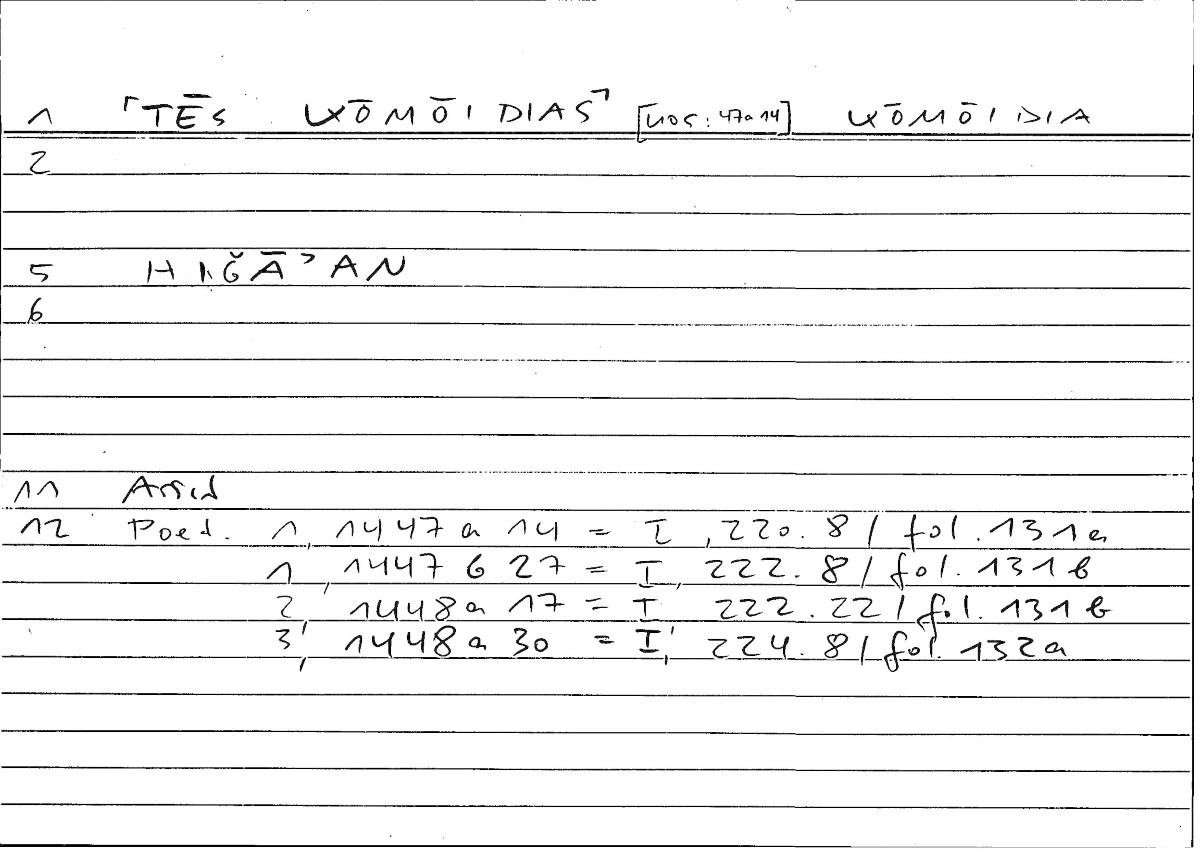 1 ⸢TĒS KŌMŌIDIAS⸣ [nos: 47a14] KŌMŌIDIA
2
5 HIǦĀʾAN
6
11 Arist
12 Poet. 1, 1447 a 14 = I, 220.8 / fol. 131a
1, 1447 b 27 = I, 222.8 / fol. 131b
2, 1448 a 17 = I 222.22 / fol. 131b
3, 1448 a 30 = I, 224.8 / fol. 132a